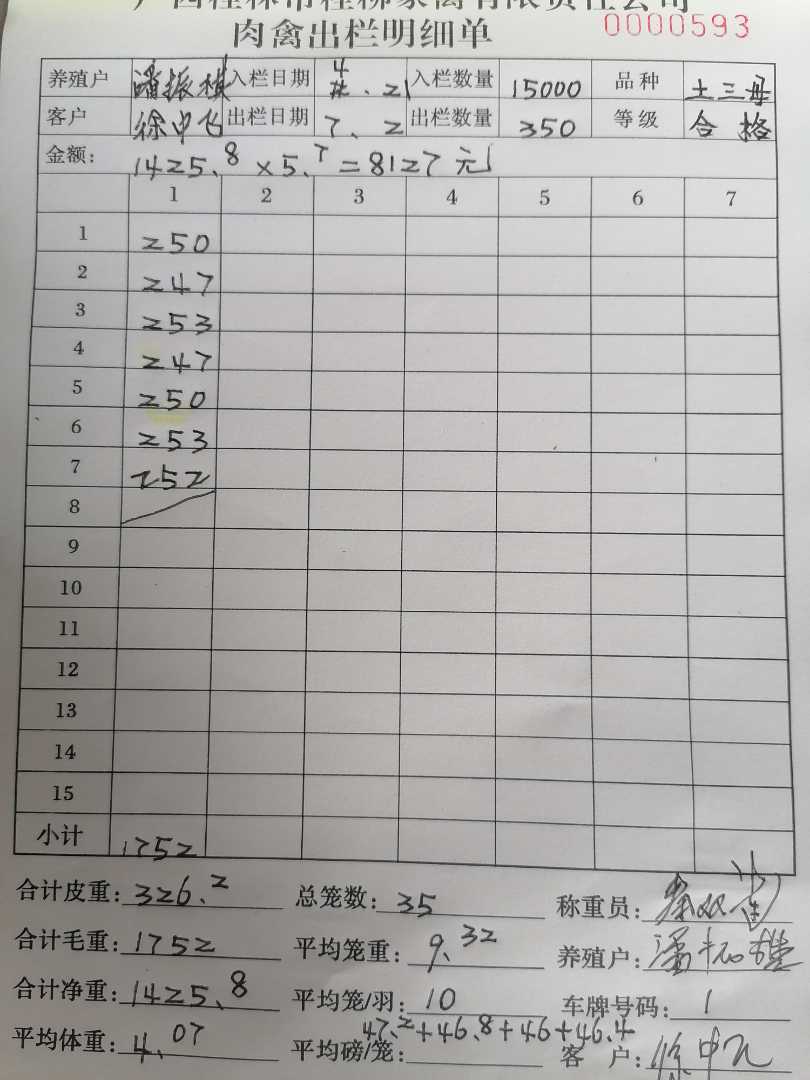 广西桂林市桂柳家禽有限责任公司
肉禽出栏明细单 0000593
养殖户 潘振棋 入栏日期 4、21 入栏数量 15000 品种 土三母
客户 徐中飞 出栏日期 7、2 出栏数量 350 等级 合格
金额: 1425.8×5.7=8127元
1 2 3 4 5 6 7
1 250
2 247
3 253
4 247
5 250
6 253
7 252
8
9
10
11
12
13
14
15
小计 1752
合计皮重: 326.2 总笼数: 35 称重员:
合计毛重: 1752 平均笼重: 9.32 养殖户: 潘振棋
合计净重: 1425.8 平均笼/羽: 10 车牌号码: 1
47.2+46.8+46+46.4
平均体重: 4.07 平均磅/笼: 客户: 徐中飞